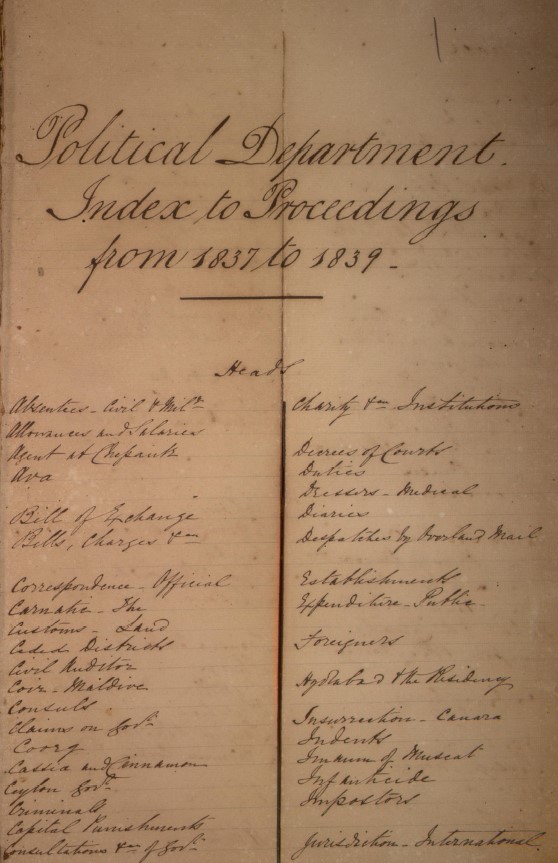 Political Department.
Index to Proceedings
from 1837 to 1839 -
Heads
Absentees - Civil & Milty
Allowances and Salaries
Agent at Chepauk
Ava
Bill of Exchange
Bills, Charges &ca
Correspondence - Official
Carnatic - The
Customs - Land
Ceded Districts
Civil Auditor
Coir - Maldive
Consuls
Claims on Govt
Coorg
Cassia and Cinnamon
Ceylon Govt
Criminals
Capital Punishments
Consultations &ca of Govt
Charity &ca Institutions
Decrees of Courts
Duties
Dressers - Medical
Diaries
Despatches by Overland Mail
Establishments
Expenditure - Public
Foreigners
Hydabad & the Residency
Insurrection - Canara
Indents
Imaum of Muscat
Infanticide
Impostors
Jurisdiction - International.